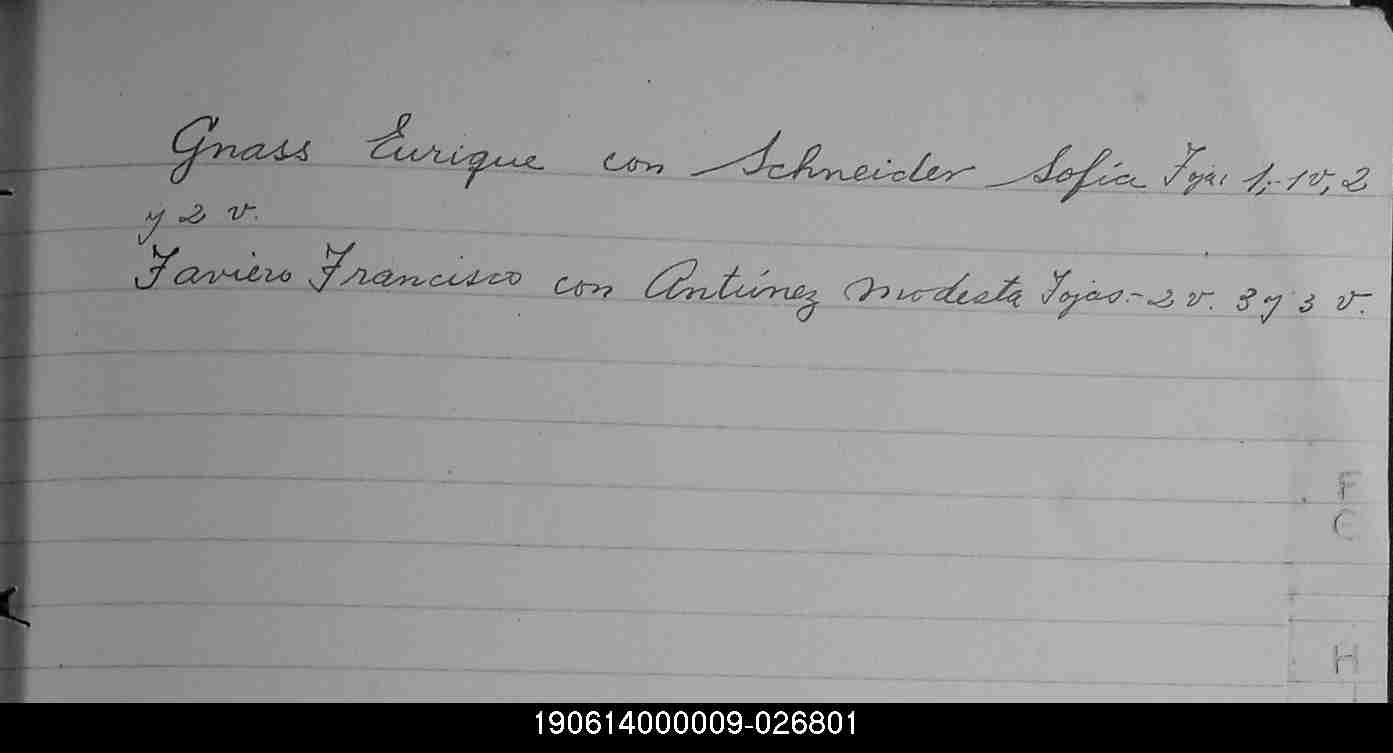 Gnass Eurique con Schneider Sofia Fojas 1,-1v, 2
y 2 v.
Faviero Francisco con Antúnez Modesta Fojas.- 2 v. 3 y 3 v.
F
G
H
190614000009-026801